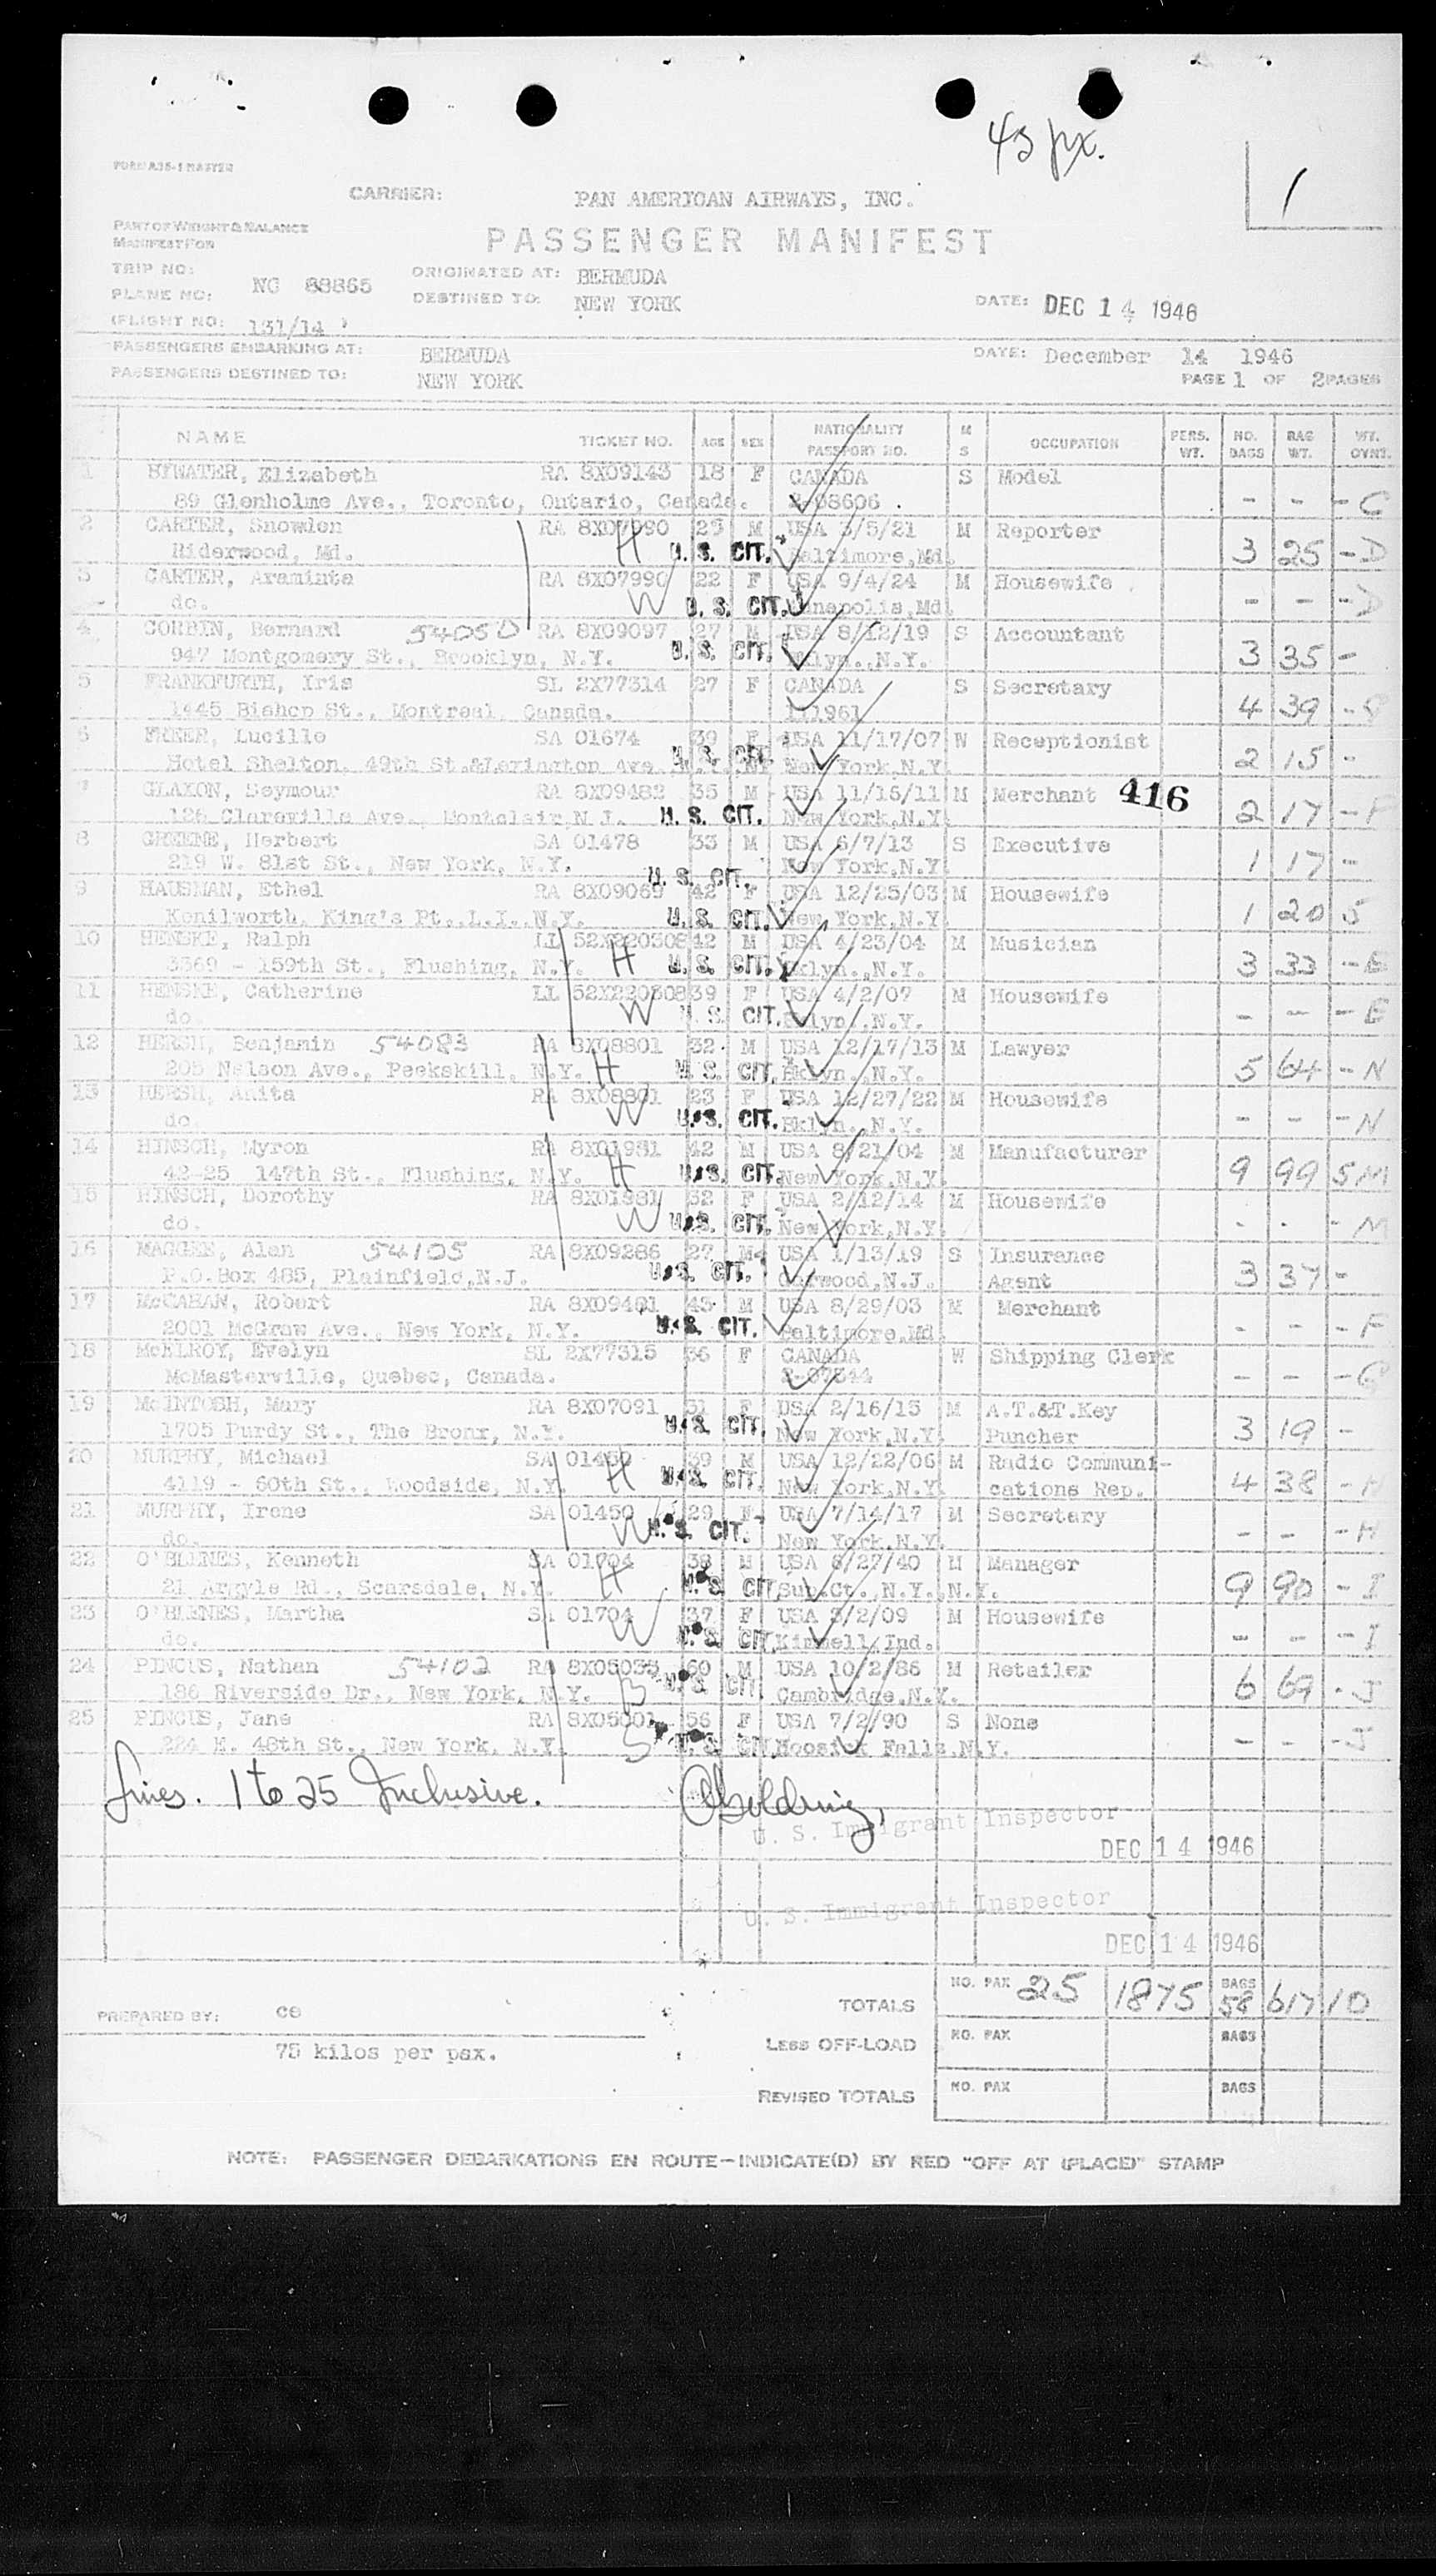 43 px.
1
FORM A35-1 MASTER
CARRIER: PAN AMERICAN AIRWAYS, INC.
PART OF WEIGHT & BALANCE
MANIFEST FOR
PASSENGER MANIFEST
TRIP NO:
PLANE NO: NC 88865
ORIGINATED AT: BERMUDA
DESTINED TO: NEW YORK
DATE: DEC 14 1946
(FLIGHT NO: 131/14 )
PASSENGERS EMBARKING AT: BERMUDA
DATE: December 14 1946
PASSENGERS DESTINED TO: NEW YORK
PAGE 1 OF 2 PAGES
NAME TICKET NO. AGE SEX NATIONALITY PASSPORT NO. M S OCCUPATION PERS. WT. NO. BAGS BAG WT. WT. OVNT.
1 BYWATER, Elizabeth RA 8X09143 18 F CANADA S Model
89 Glenholme Ave., Toronto, Ontario, Canada. 2-08606 - - - C
2 CARTER, Snowden RA 8X07990 25 M USA 3/5/21 M Reporter
Riderwood, Md. H U. S. CIT. Baltimore, Md. 3 25 - D
3 CARTER, Araminta RA 8X07990 22 F USA 9/4/24 M Housewife
do. W U. S. CIT. Annapolis, Md. - - - D
4 CORBIN, Bernard 54050 RA 8X09097 27 M USA 8/12/19 S Accountant
947 Montgomery St., Brooklyn, N.Y. U. S. CIT. Bklyn., N.Y. 3 35 -
5 FRANKFURTH, Iris SL 2X77314 27 F CANADA S Secretary
1445 Bishop St., Montreal, Canada. 4 39 -
6 FREER, Lucille SA 01674 39 F USA 11/17/07 W Receptionist
Hotel Shelton, 49th St.&Lexington Ave. U. S. CIT. New York, N.Y. 2 15 -
7 GLAXON, Seymour RA 8X09482 35 M USA 11/15/11 M Merchant 416
126 Clareville Ave., Montclair, N.J. U. S. CIT. New York, N.Y. 2 17 - F
8 GREENE, Herbert SA 01478 33 M USA 6/7/13 S Executive
219 W. 81st St., New York, N.Y. U. S. CIT. New York, N.Y. 1 17 -
9 HAUSMAN, Ethel RA 8X09069 42 F USA 12/25/03 M Housewife
Kenilworth, King's Pt., L.I., N.Y. U. S. CIT. New York, N.Y. 1 20 5
10 HENSKE, Ralph LL 52X220308 42 M USA 4/23/04 M Musician
3369 - 159th St., Flushing, N.Y. H U. S. CIT. Bklyn., N.Y. 3 33 - E
11 HENSKE, Catherine LL 52X220308 39 F USA 4/2/07 M Housewife
do. W U. S. CIT. Bklyn., N.Y. - - - E
12 HERSH, Benjamin 54083 RA 8X08801 32 M USA 12/17/13 M Lawyer
205 Nelson Ave., Peekskill, N.Y. H U. S. CIT. Bklyn., N.Y. 5 64 - N
13 HERSH, Anita RA 8X08801 23 F USA 12/27/22 M Housewife
do. W U. S. CIT. Bklyn., N.Y. - - - N
14 HINSCH, Myron RA 8X01981 42 M USA 8/21/04 M Manufacturer
42-25 147th St., Flushing, N.Y. H U. S. CIT. New York, N.Y. 9 99 5 M
15 HINSCH, Dorothy RA 8X01981 32 F USA 2/12/14 M Housewife
do. W U. S. CIT. New York, N.Y. - - - M
16 MAGGEE, Alan 54105 RA 8X09286 27 M USA 1/13/19 S Insurance
P.O.Box 485, Plainfield, N.J. U. S. CIT. Garwood, N.J. Agent 3 37 -
17 McCAHAN, Robert RA 8X09481 43 M USA 8/29/03 M Merchant
2001 McGraw Ave., New York, N.Y. U. S. CIT. Baltimore, Md. - - - F
18 McELROY, Evelyn SL 2X77315 36 F CANADA W Shipping Clerk
McMasterville, Quebec, Canada. 2-07344 - - - G
19 McINTOSH, Mary RA 8X07091 31 F USA 2/16/15 M A.T.&T.Key
1705 Purdy St., The Bronx, N.Y. U. S. CIT. New York, N.Y. Puncher 3 19 -
20 MURPHY, Michael SA 01450 39 M USA 12/22/06 M Radio Communi-
4119 - 60th St., Woodside, N.Y. H U. S. CIT. New York, N.Y. cations Rep. 4 38 - H
21 MURPHY, Irene SA 01450 29 F USA 7/14/17 M Secretary
do. W U. S. CIT. New York, N.Y. - - - H
22 O'BLENES, Kenneth SA 01704 38 M USA 6/27/40 M Manager
21 Argyle Rd., Scarsdale, N.Y. H U. S. CIT. Sup.Ct., N.Y., N.Y. 9 90 - I
23 O'BLENES, Martha SA 01704 37 F USA 3/2/09 M Housewife
do. W U. S. CIT. Kimmell, Ind. - - - I
24 PINCUS, Nathan 54102 RA 8X05035 60 M USA 10/2/86 M Retailer
186 Riverside Dr., New York, N.Y. B U. S. CIT. Cambridge, N.Y. 6 69 - J
25 PINCUS, Jane RA 8X05001 56 F USA 7/2/90 S None
224 E. 48th St., New York, N.Y. S U. S. CIT. Hoosick Falls, N.Y. - - - J
Lines. 1 to 25 Inclusive.
U. S. Immigrant Inspector
DEC 14 1946
U. S. Immigrant Inspector
DEC 14 1946
TOTALS NO. PAX 25 1875 BAGS 58 617 10
PREPARED BY: ce
LESS OFF-LOAD NO. PAX BAGS
75 kilos per pax.
REVISED TOTALS NO. PAX BAGS
NOTE: PASSENGER DEBARKATIONS EN ROUTE—INDICATE(D) BY RED "OFF AT (PLACE)" STAMP